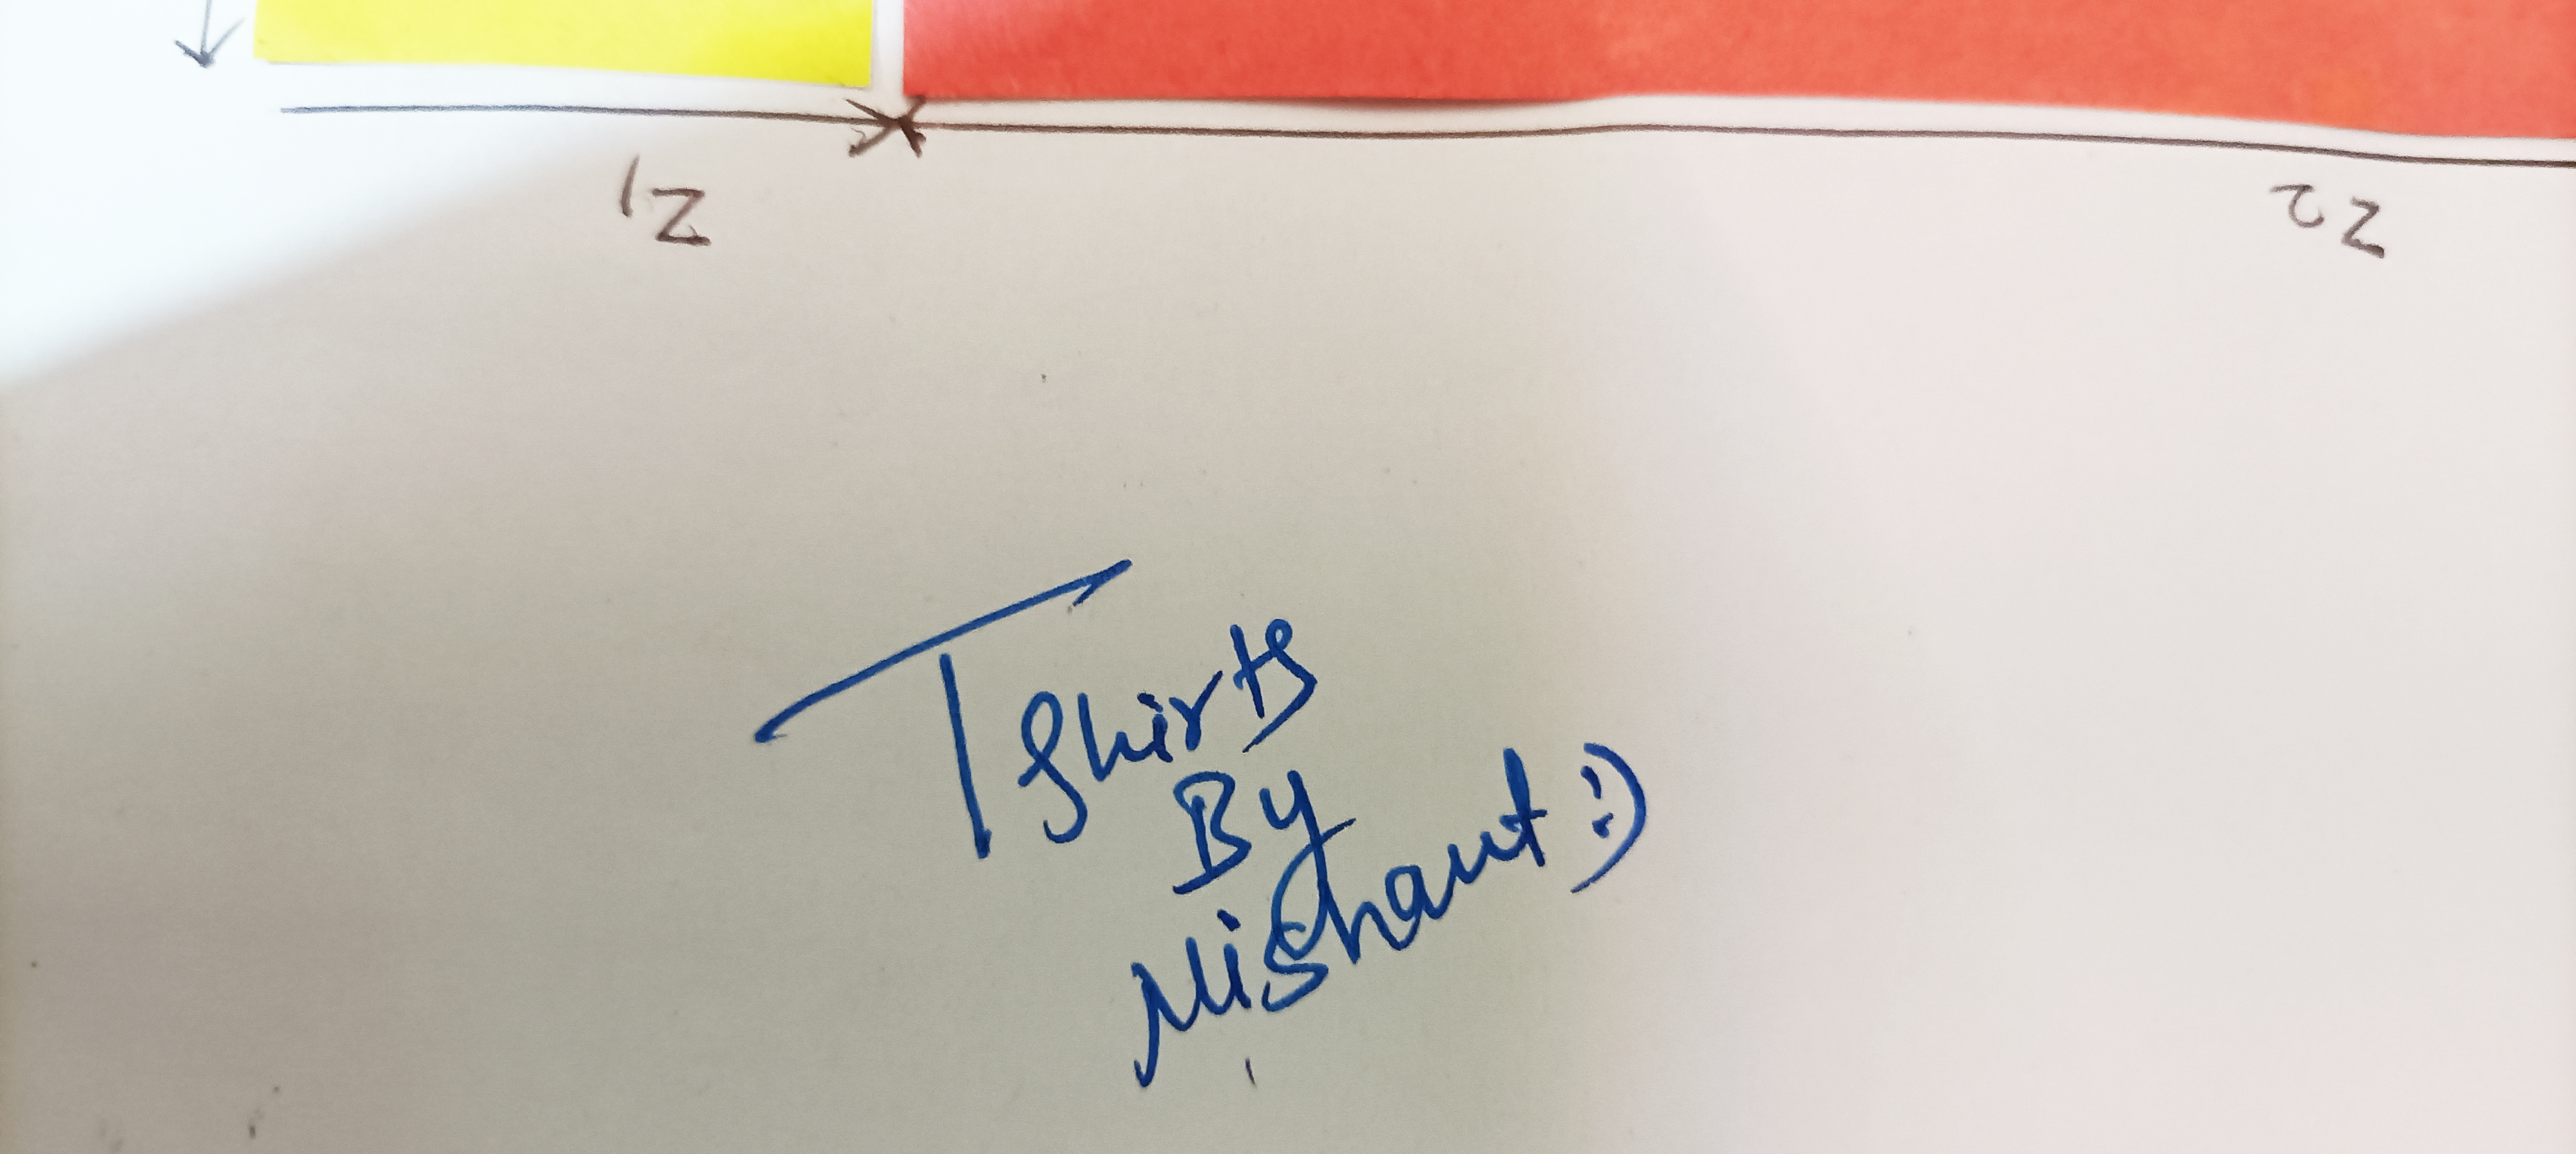 Z₁
Z₂
Tshirts
By
Nishant :)